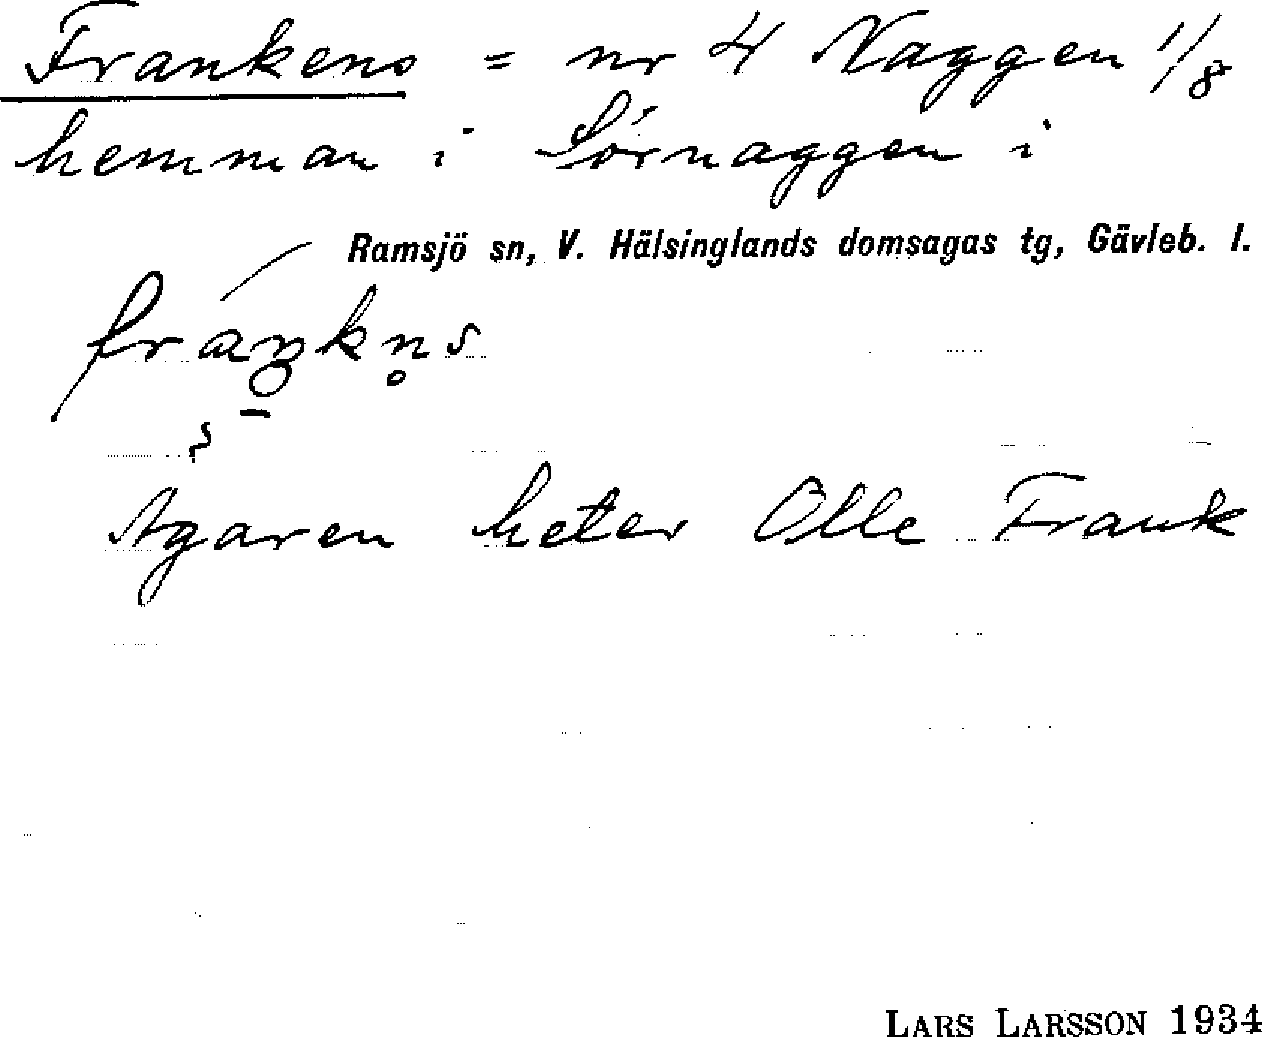 Frankens = nr 4 Naggen 1/8
hemman i Sörnaggen i
Ramsjö sn, V. Hälsinglands domsagas tg, Gävleb. l.
fráŋkn̥s
Ägaren heter Olle Frank
LARS LARSSON 1934